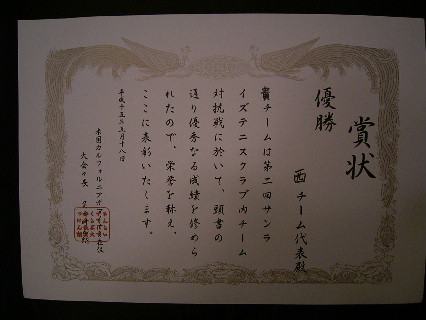 賞状
優勝
西チーム代表殿
貴チームは第二回サンラ
イズテニスクラブ内チーム
対抗戦に於いて、頭書の
通り優秀なる成績を修めら
れたので、栄誉を称え、
ここに表彰いたします。
平成十五年五月十八日
米国カルフォルニア
大会々長